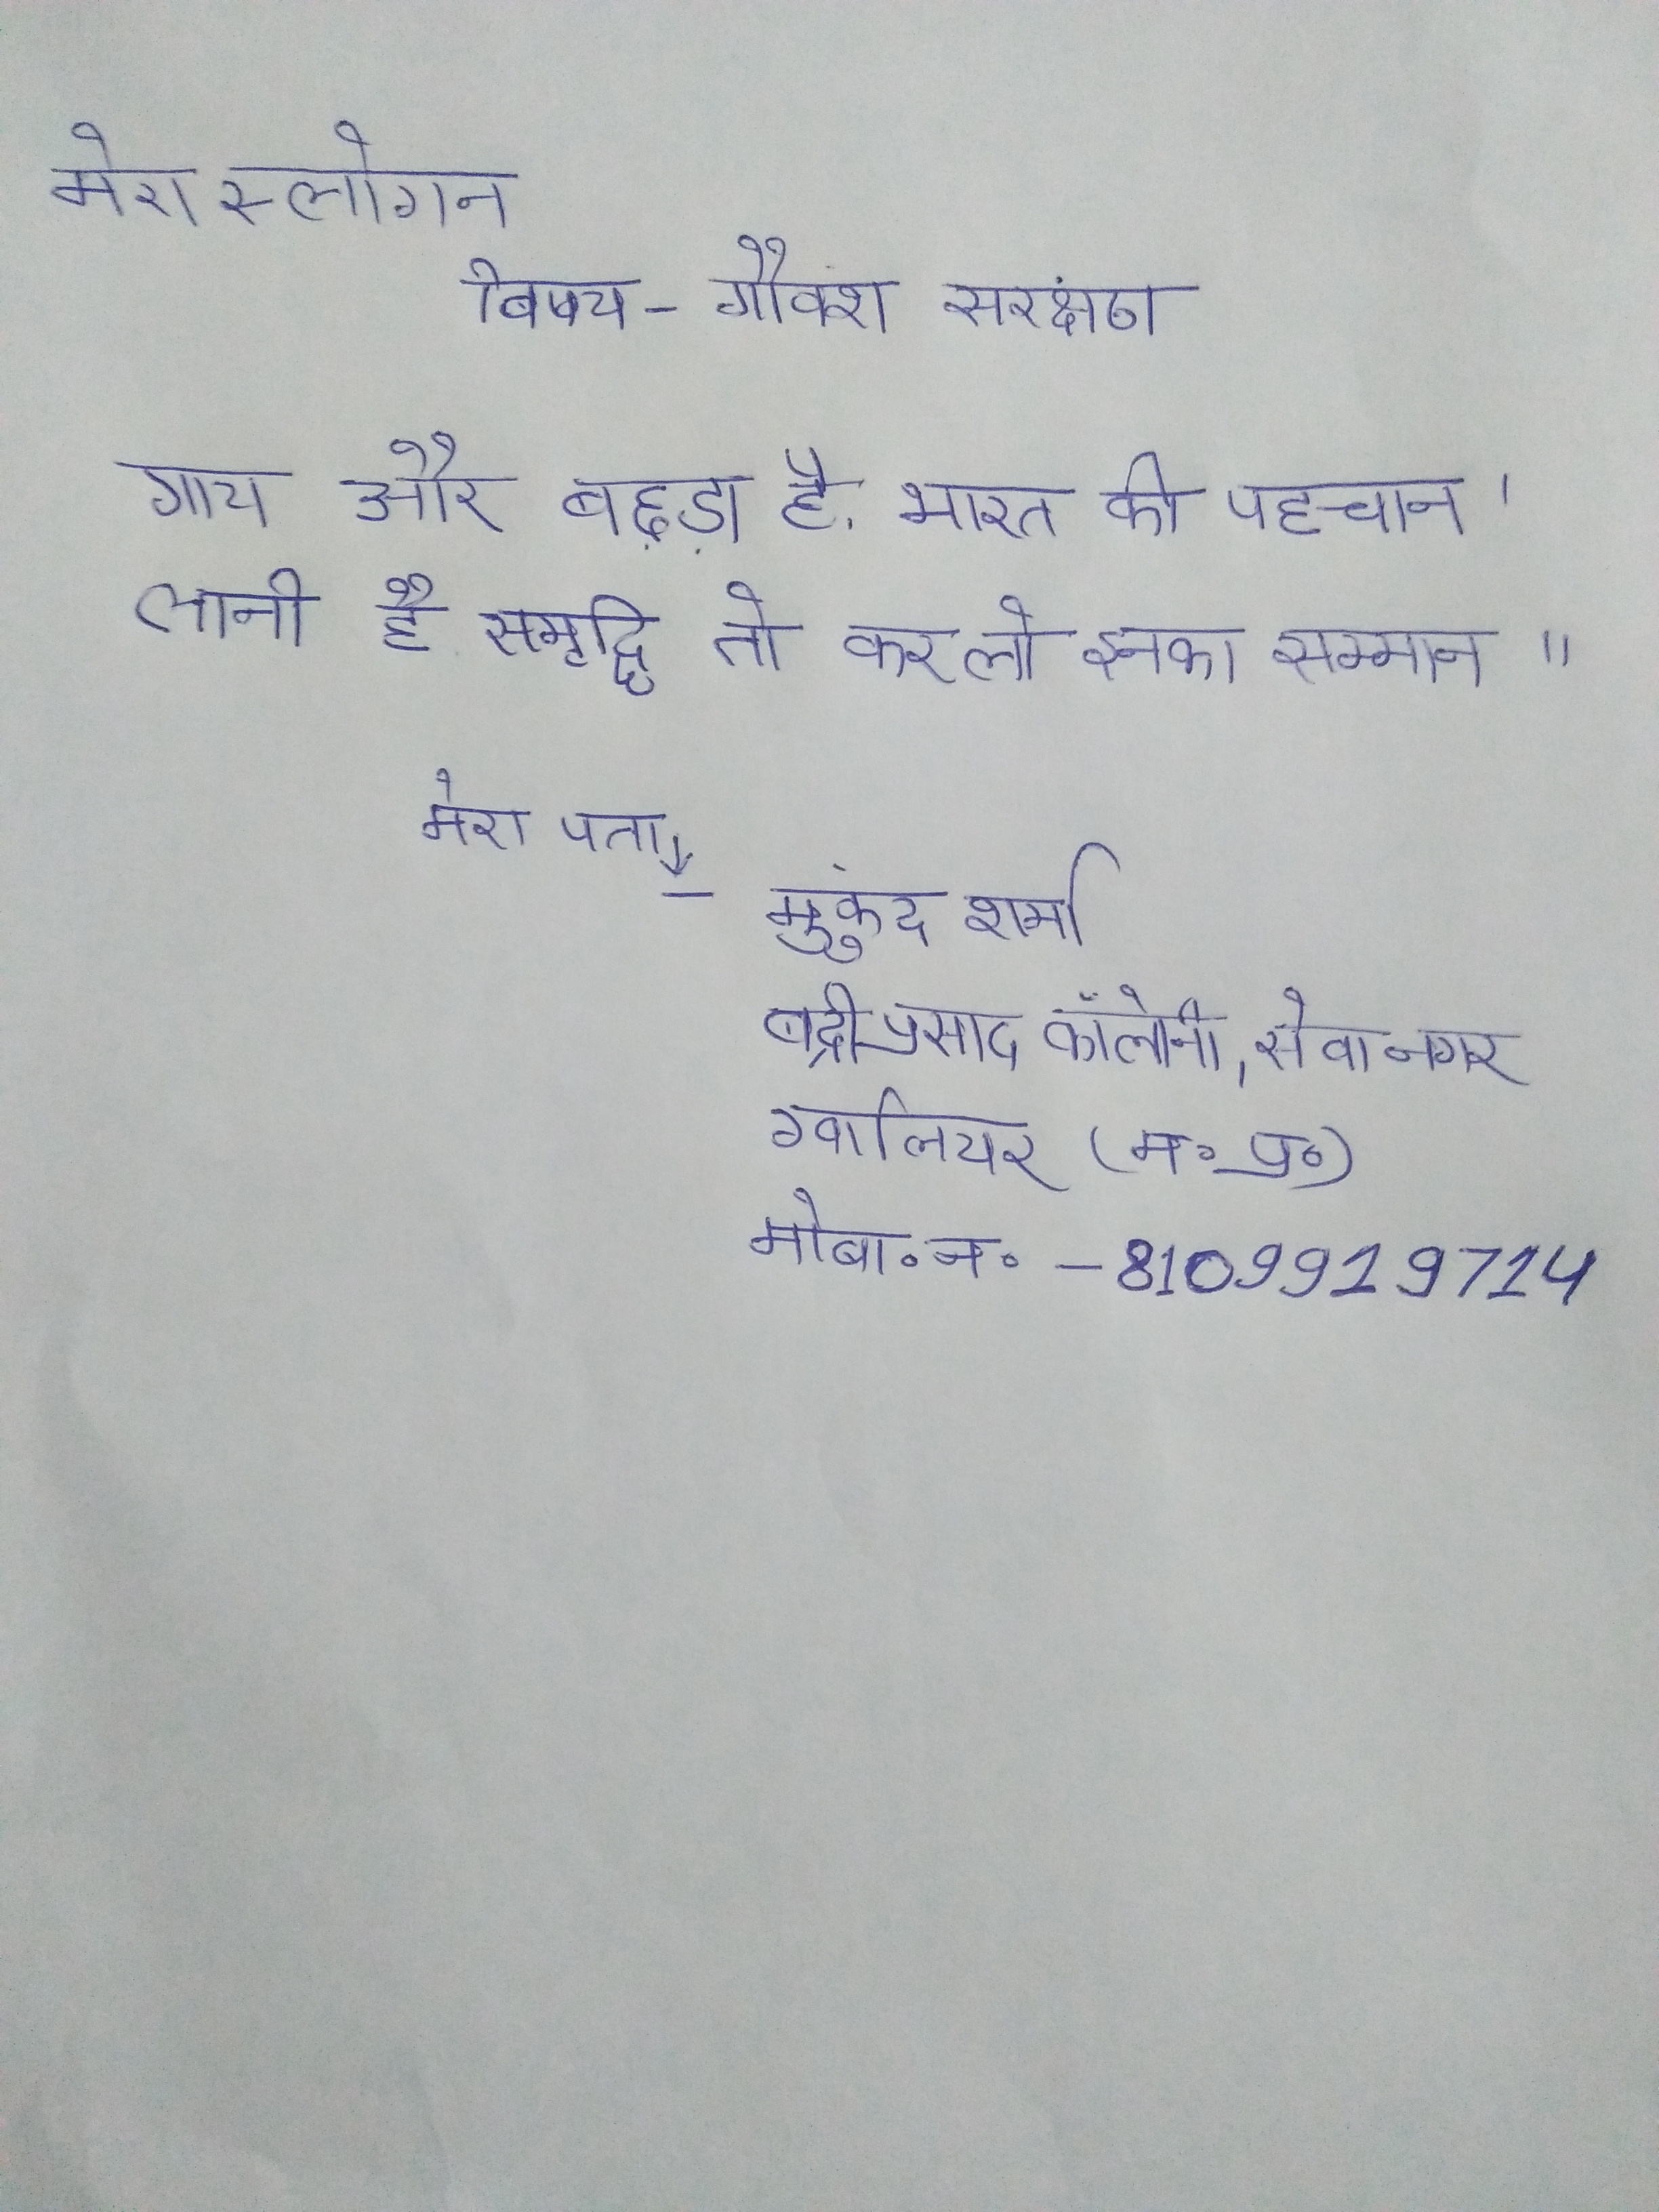 मेरा स्लोगन
विषय - गौवंश सरक्षंण
गाय और बछ़ड़ा है. भारत की पहचान ।
लानी है समृद्धि तो करलो इनका सम्मान ॥
मेरा पता
मुकुंद शर्मा
बद्रीप्रसाद कॉलोनी, सेवा नगर
ग्वालियर (म॰ प्र॰)
मोबा॰ न॰ - 8109919714